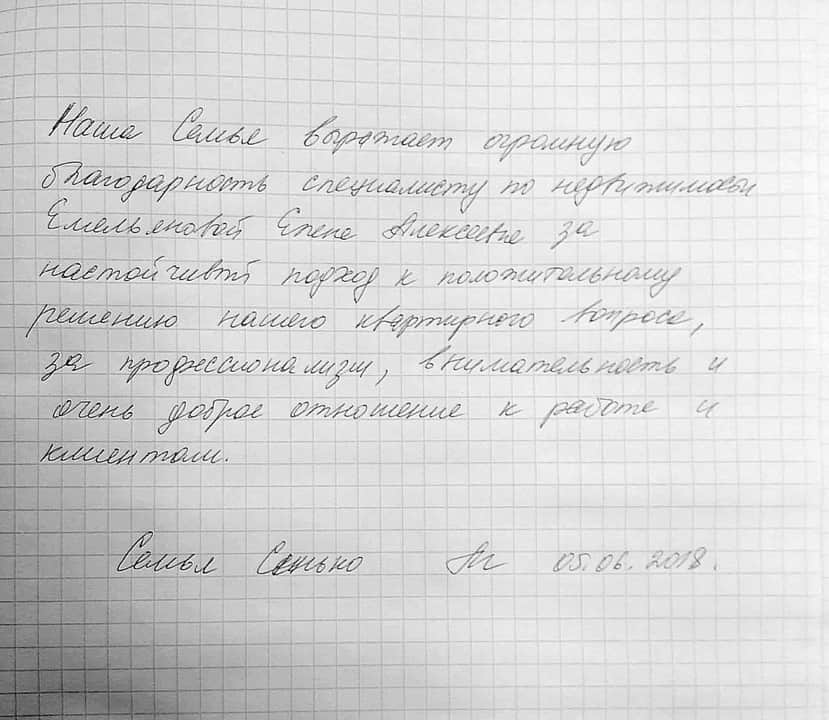 Наша Семья выражает огромную
благодарность специалисту по недвижимости
Емельяновой Елене Алексеевне за
настойчивый подход к положительному
решению нашего квартирного вопроса,
за профессионализм, внимательность и
очень доброе отношение к работе и
клиентам.
Семья Сенько 05.06.2018.